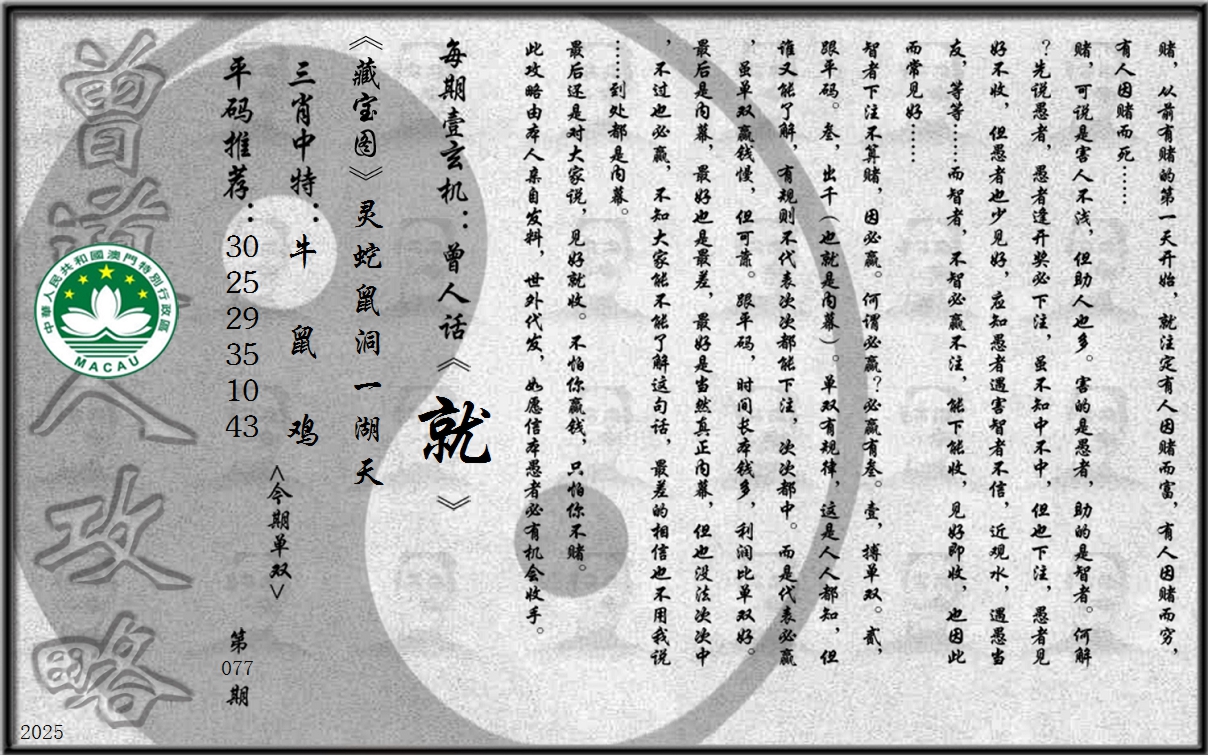 赌，从前有赌的第一天开始，就注定有人因赌而富，有人因赌而穷，
有人因赌而死……
赌，可说是害人不浅，但助人也多。害的是愚者，助的是智者。何解
？先说愚者，愚者逢开奖必下注，虽不知中不中，但也下注，愚者见
好不收，但愚者也少见好，应知愚者遇害智者不信，近观水，遇愚当
友，等等……而智者，不智必赢不注，能下能收，见好即收，也因此
而常见好……
智者下注不算赌，因必赢。何谓必赢？必赢有叁。壹，搏单双。贰，
跟平码。叁，出千（也就是内幕）。单双有规律，这是人人都知，但
谁又能了解，有规则不代表次次都能下注，次次都中。而是代表必赢
，虽单双赢钱慢，但可靠。跟平码，时间长本钱多，利润比单双好。
最后是内幕，最好也是最差，最好是当然真正内幕，但也没法次次中
，不过也必赢，不知大家能不能了解这句话，最差的相信也不用我说
……到处都是内幕。
最后还是对大家说，见好就收。不怕你赢钱，只怕你不赌。
此攻略由本人亲自发料，世外代发，如愿信本愚者必有机会收手。
每期壹玄机：曾人话《就》
《藏宝图》灵蛇鼠洞一湖天
三肖中特：牛 鼠 鸡
<今期单双>
平码推荐：30 25 29 35 10 43
第077期
曾道人攻略
中華人民共和國澳門特別行政區
MACAU
2025